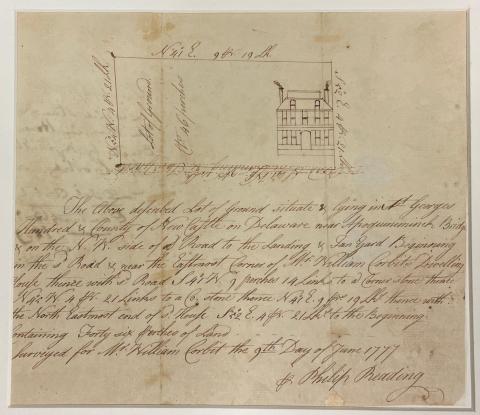 N 41 E. 9 pr 19 Lk.
N 52 W 4 pr 21 Lk
Lot of Ground
Cont. 46 perches
S 52 E 4 pr 21 Lk
The Above described Lot of Ground situate & lying in St. Georges
Hundred & County of New Castle on Delaware near Apoquiniminck Bridge
& on the N. W. side of a Road to the Landing & Tan Yard Beginning
in the sd. Road & near the Eastmost Corner of Mr. William Corbits Dwelling
House thence with sd. Road S 41 W. 9 perches 14 Links to a Corner stone thence
N 45 W 4 pr 21 Links to a Cor. stone thence N 41 E 9 prs 19 Lks thence with
the North Eastmost end of sd. House S 52 E 4 pr 21 Lks to the Beginning.
Containing Forty six perches of Land.
Surveyed for Mr. William Corbit the 9th Day of June 1777
Pr. Philip Reading